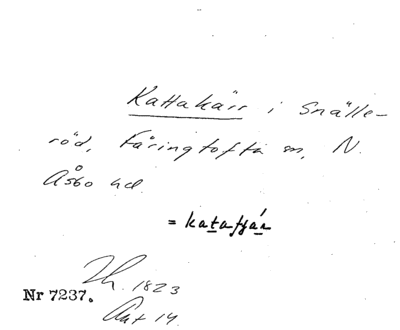 Kattakärr i Snälle-
röd, Fåringtofta sn, N.
Åsbo hd.
= katatjär
1823
Nr 7237.
14